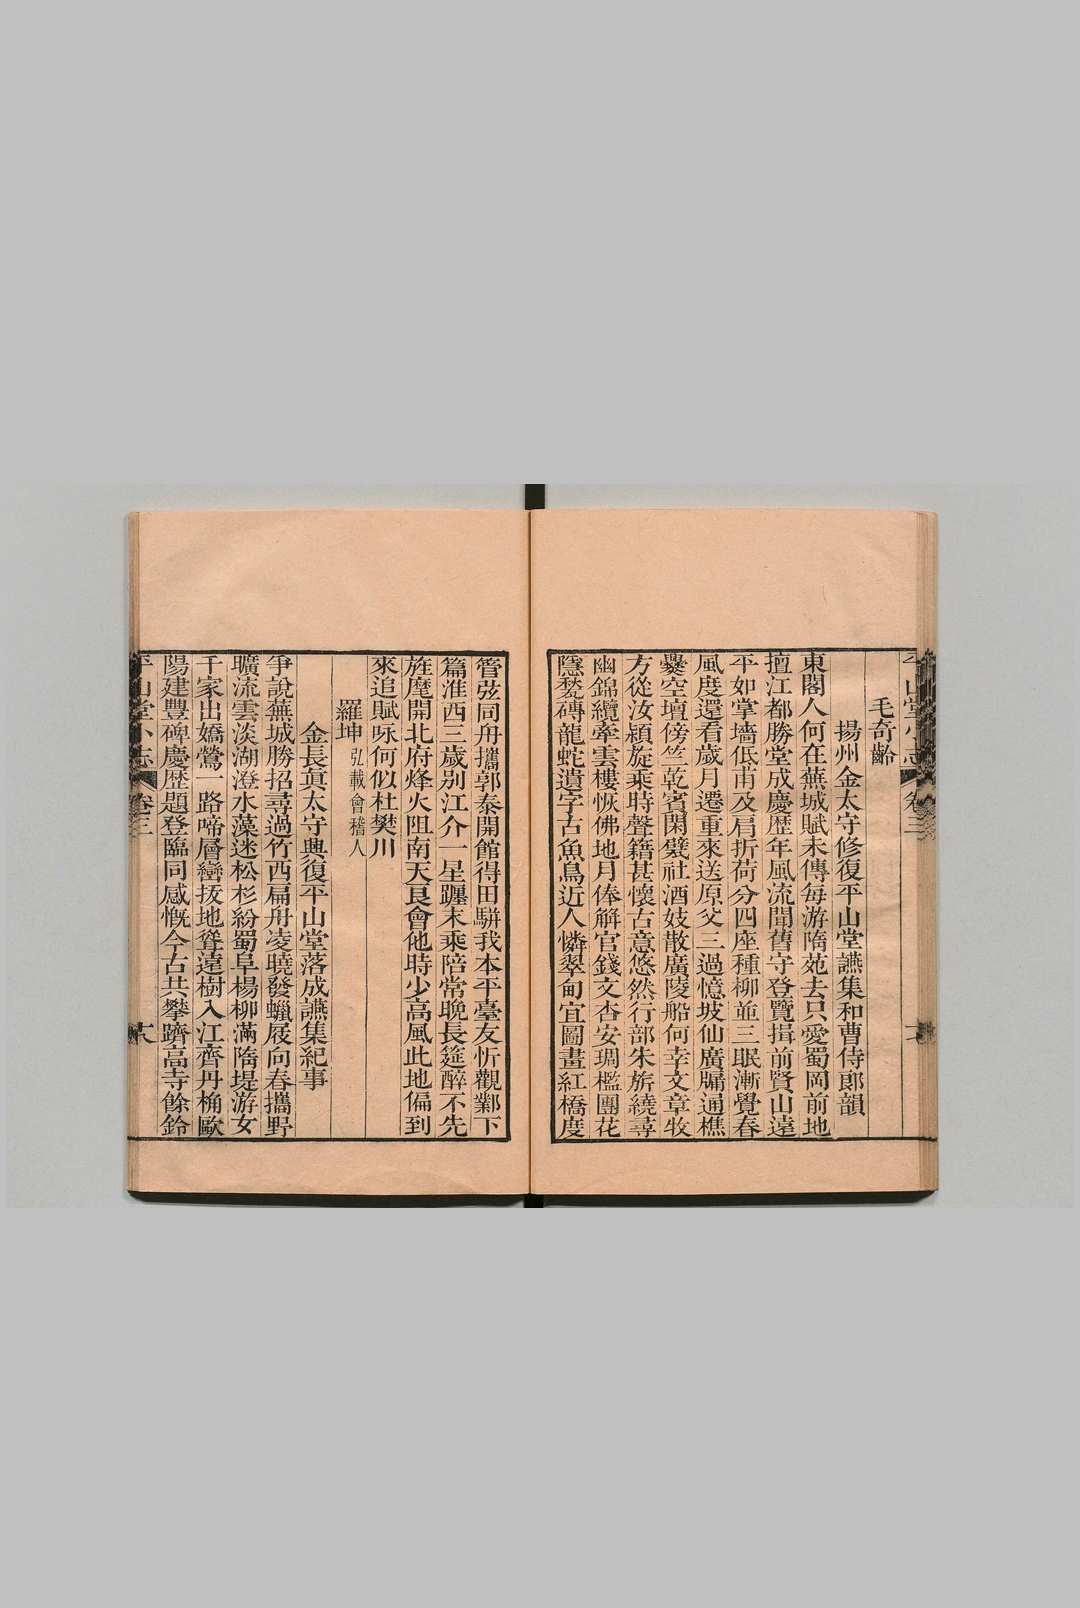 平山堂小志 卷三
毛奇齡
揚州金太守修復平山堂讌集和曹侍郎韻
東閣人何在蕪城賦未傳每游隋苑去只愛蜀岡前地
擅江都勝堂成慶歷年風流聞舊守登覽揖前賢山遠
平如掌墻低甫及肩折荷分四座種柳並三眠漸覺春
風度還看歲月遷重來送原父三過憶坡仙廣牖通樵
爨空壇傍竺乾賓閑襞社酒妓散廣陵船何幸文章牧
方從汝潁旋乘時聲籍甚懷古意悠然行部朱旂繞尋
幽錦纜牽雲樓恢佛地月俸解官錢文杏安琱檻團花
隱甃磚龍蛇遺字古魚鳥近人憐翠甸宜圖畫紅橋度
管弦同舟攜郭泰開館得田駢我本平臺友忻觀鄴下
篇淮西三歲别江介一星躔未乘陪常晚長筵醉不先
旌麾開北府烽火阻南天良會他時少高風此地偏到
來追賦咏何似杜樊川
羅坤 弘載會稽人
金長眞太守興復平山堂落成讌集紀事
爭說蕪城勝招尋過竹西扁舟凌曉發蠟屐向春攜野
曠流雲淡湖澄水藻迷松杉紛蜀阜楊柳滿隋堤游女
千家出嬌鶯一路啼層巒拔地聳遠樹入江齊丹桷歐
陽建豐碑慶歷題登臨同感慨今古共攀躋高寺餘鈴
平山堂小志 卷三